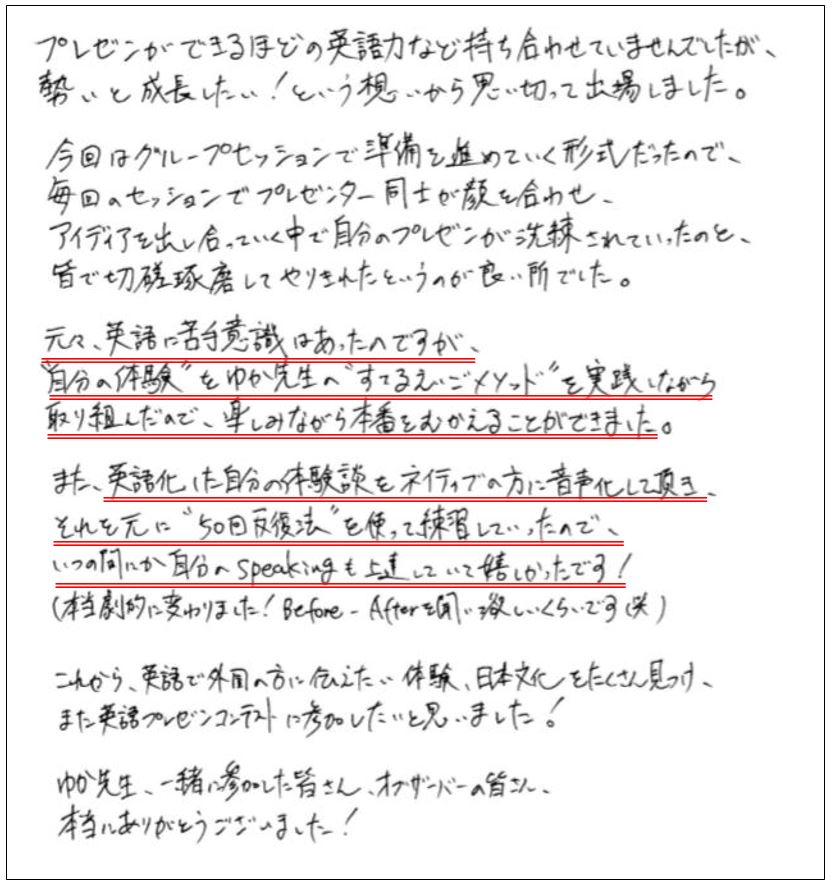 プレゼンができるほどの英語力など持ち合わせていませんでしたが、
勢いと成長したい！という想いから思い切って出場しました。
今回はグループセッションで準備を進めていく形式だったので、
毎回のセッションでプレゼンター同士が顔を合わせ、
アイディアを出し合っていく中で自分のプレゼンが洗練されていったのと、
皆で切磋琢磨してやりきれたというのが良い所でした。
元々、英語に苦手意識はあったのですが、
"自分の体験"をゆか先生の"すてるえいごメソッド"を実践しながら
取り組んだので、楽しみながら本番をむかえることができました。
また、英語化した自分の体験談をネイティブの方に音声化して頂き、
それを元に"50回反復法"を使って練習していったので、
いつの間にか自分のspeakingも上達していて嬉しかったです！
(本当劇的に変わりました！Before - Afterを聞いて欲しいくらいです(笑)
これから、英語で外国の方に伝えたい体験、日本文化をたくさん見つけ、
また英語プレゼンコンテストに参加したいと思いました！
ゆか先生、一緒に参加した皆さん、オブザーバーの皆さん、
本当にありがとうございました！